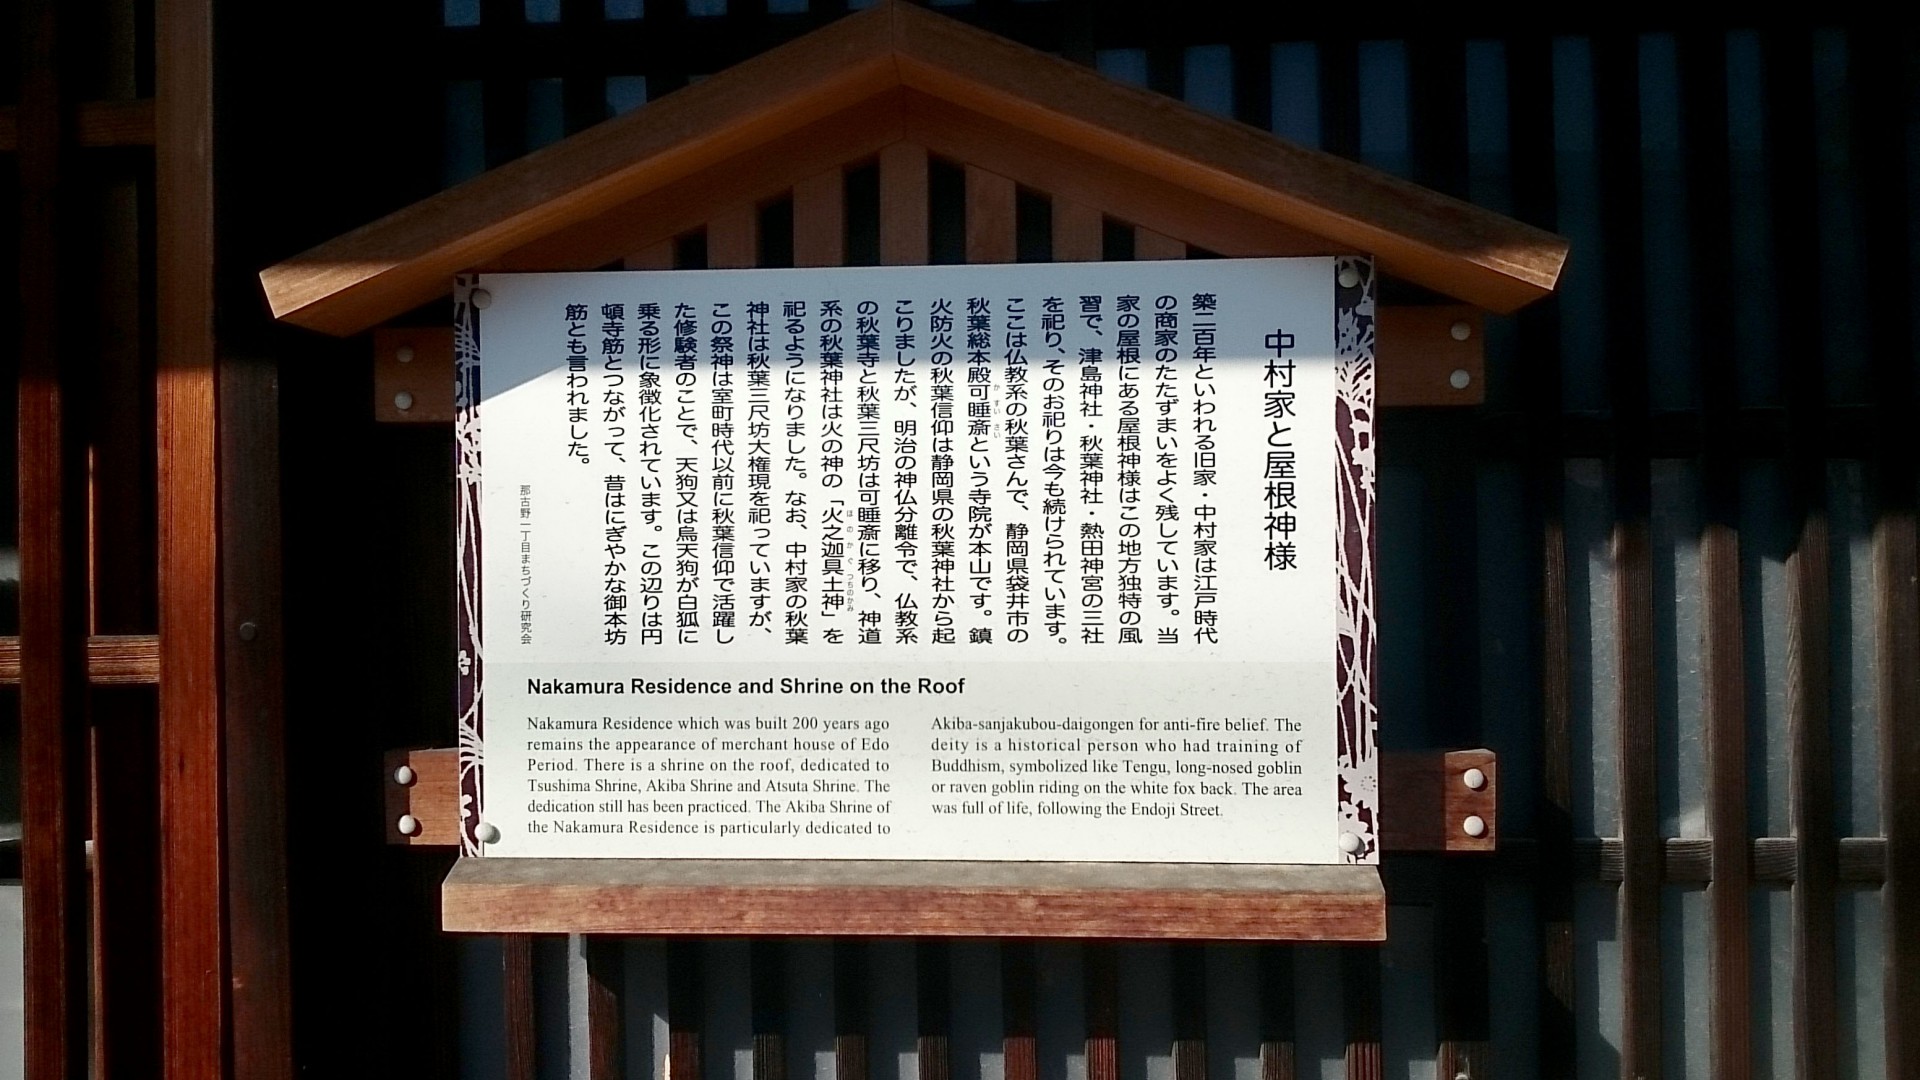 中村家と屋根神様
築二百年といわれる旧家・中村家は江戸時代
の商家のたたずまいをよく残しています。当
家の屋根にある屋根神様はこの地方独特の風
習で、津島神社・秋葉神社・熱田神宮の三社
を祀り、そのお祀りは今も続けられています。
ここは仏教系の秋葉さんで、静岡県袋井市の
秋葉総本殿可睡斎という寺院が本山です。鎮
かすいさい
火防火の秋葉信仰は静岡県の秋葉神社から起
こりましたが、明治の神仏分離令で、仏教系
の秋葉寺と秋葉三尺坊は可睡斎に移り、神道
系の秋葉神社は火の神の「火之迦具土神」を
ほのかぐつちのかみ
祀るようになりました。なお、中村家の秋葉
神社は秋葉三尺坊大権現を祀っていますが、
この祭神は室町時代以前に秋葉信仰で活躍し
た修験者のことで、天狗又は烏天狗が白狐に
乗る形に象徴化されています。この辺りは円
頓寺筋とつながって、昔はにぎやかな御本坊
筋とも言われました。
那古野一丁目まちづくり研究会
Nakamura Residence and Shrine on the Roof
Nakamura Residence which was built 200 years ago
remains the appearance of merchant house of Edo
Period. There is a shrine on the roof, dedicated to
Tsushima Shrine, Akiba Shrine and Atsuta Shrine. The
dedication still has been practiced. The Akiba Shrine of
the Nakamura Residence is particularly dedicated to
Akiba-sanjakubou-daigongen for anti-fire belief. The
deity is a historical person who had training of
Buddhism, symbolized like Tengu, long-nosed goblin
or raven goblin riding on the white fox back. The area
was full of life, following the Endoji Street.